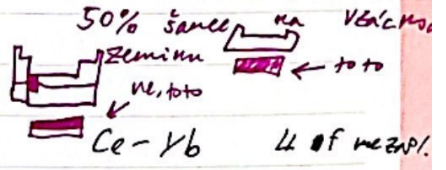 50% šance na vzácnou
zeminu
← toto
ne, toto
Ce - Yb 4 f nezapl.